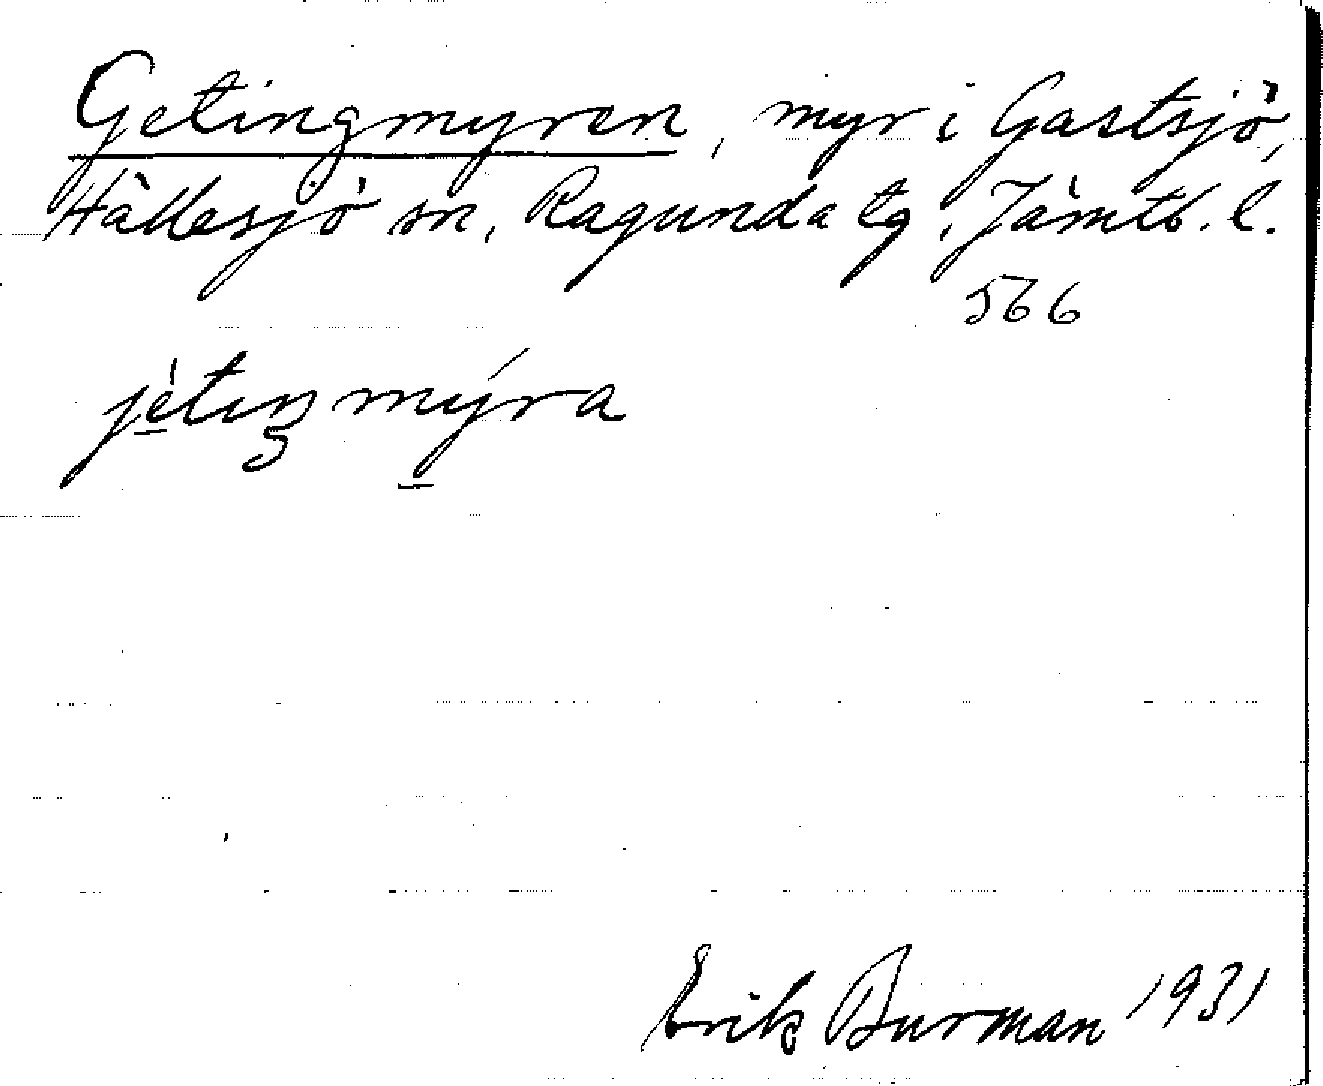 Getingmyren, myr i Gastsjö,
Hällesjö sn, Ragunda tg, Jämtl. l.
566
jètiŋmýra
Erik Burman 1931